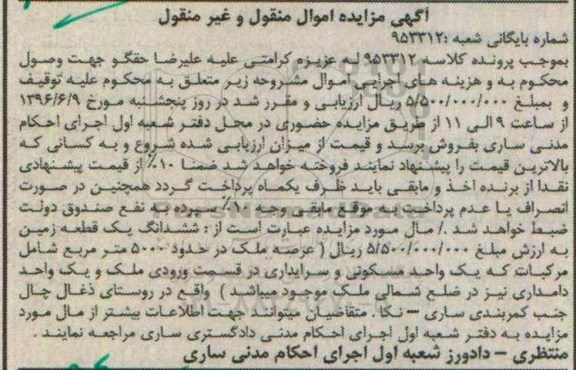 آگهی مزایده اموال منقول و غیر منقول
شماره بایگانی شعبه :۹۵۳۳۱۲
بموجب پرونده کلاسه ۹۵۳۳۱۲ له عزیزه کرامتی علیه علیرضا حقگو جهت وصول
محکوم به و هزینه های اجرایی اموال مشروحه زیر متعلق به محکوم علیه توقیف
و بمبلغ ۵/۵۰۰/۰۰۰/۰۰۰ ریال ارزیابی و مقرر شد در روز پنجشنبه مورخ ۱۳۹۶/۶/۹
از ساعت ۹ الی ۱۱ از طریق مزایده حضوری در محل دفتر شعبه اول اجرای احکام
مدنی ساری بفروش برسد و قیمت از میزان ارزیابی شده شروع و به کسانی که
بالاترین قیمت را پیشنهاد نمایند فروخته خواهد شد ضمنا ۱۰٪ از قیمت پیشنهادی
نقدا از برنده اخذ و مابقی باید ظرف یکماه پرداخت گردد همچنین در صورت
انصراف یا عدم پرداخت به موقع مابقی وجه ۱۰٪ سپرده به نفع صندوق دولت
ضبط خواهد شد ./ مال مورد مزایده عبارت است از : ششدانگ یک قطعه زمین
به ارزش مبلغ ۵/۵۰۰/۰۰۰/۰۰۰ ریال ( عرصه ملک در حدود ۵۰۰۰ متر مربع شامل
مرکبات که یک واحد مسکونی و سرایداری در قسمت ورودی ملک و یک واحد
دامداری نیز در ضلع شمالی ملک موجود میباشد ) واقع در روستای ذغال چال
جنب کمربندی ساری – نکا . متقاضیان میتوانند جهت اطلاعات بیشتر از مال مورد
مزایده به دفتر شعبه اول اجرای احکام مدنی دادگستری ساری مراجعه نمایند .
منتظری – دادورز شعبه اول اجرای احکام مدنی ساری